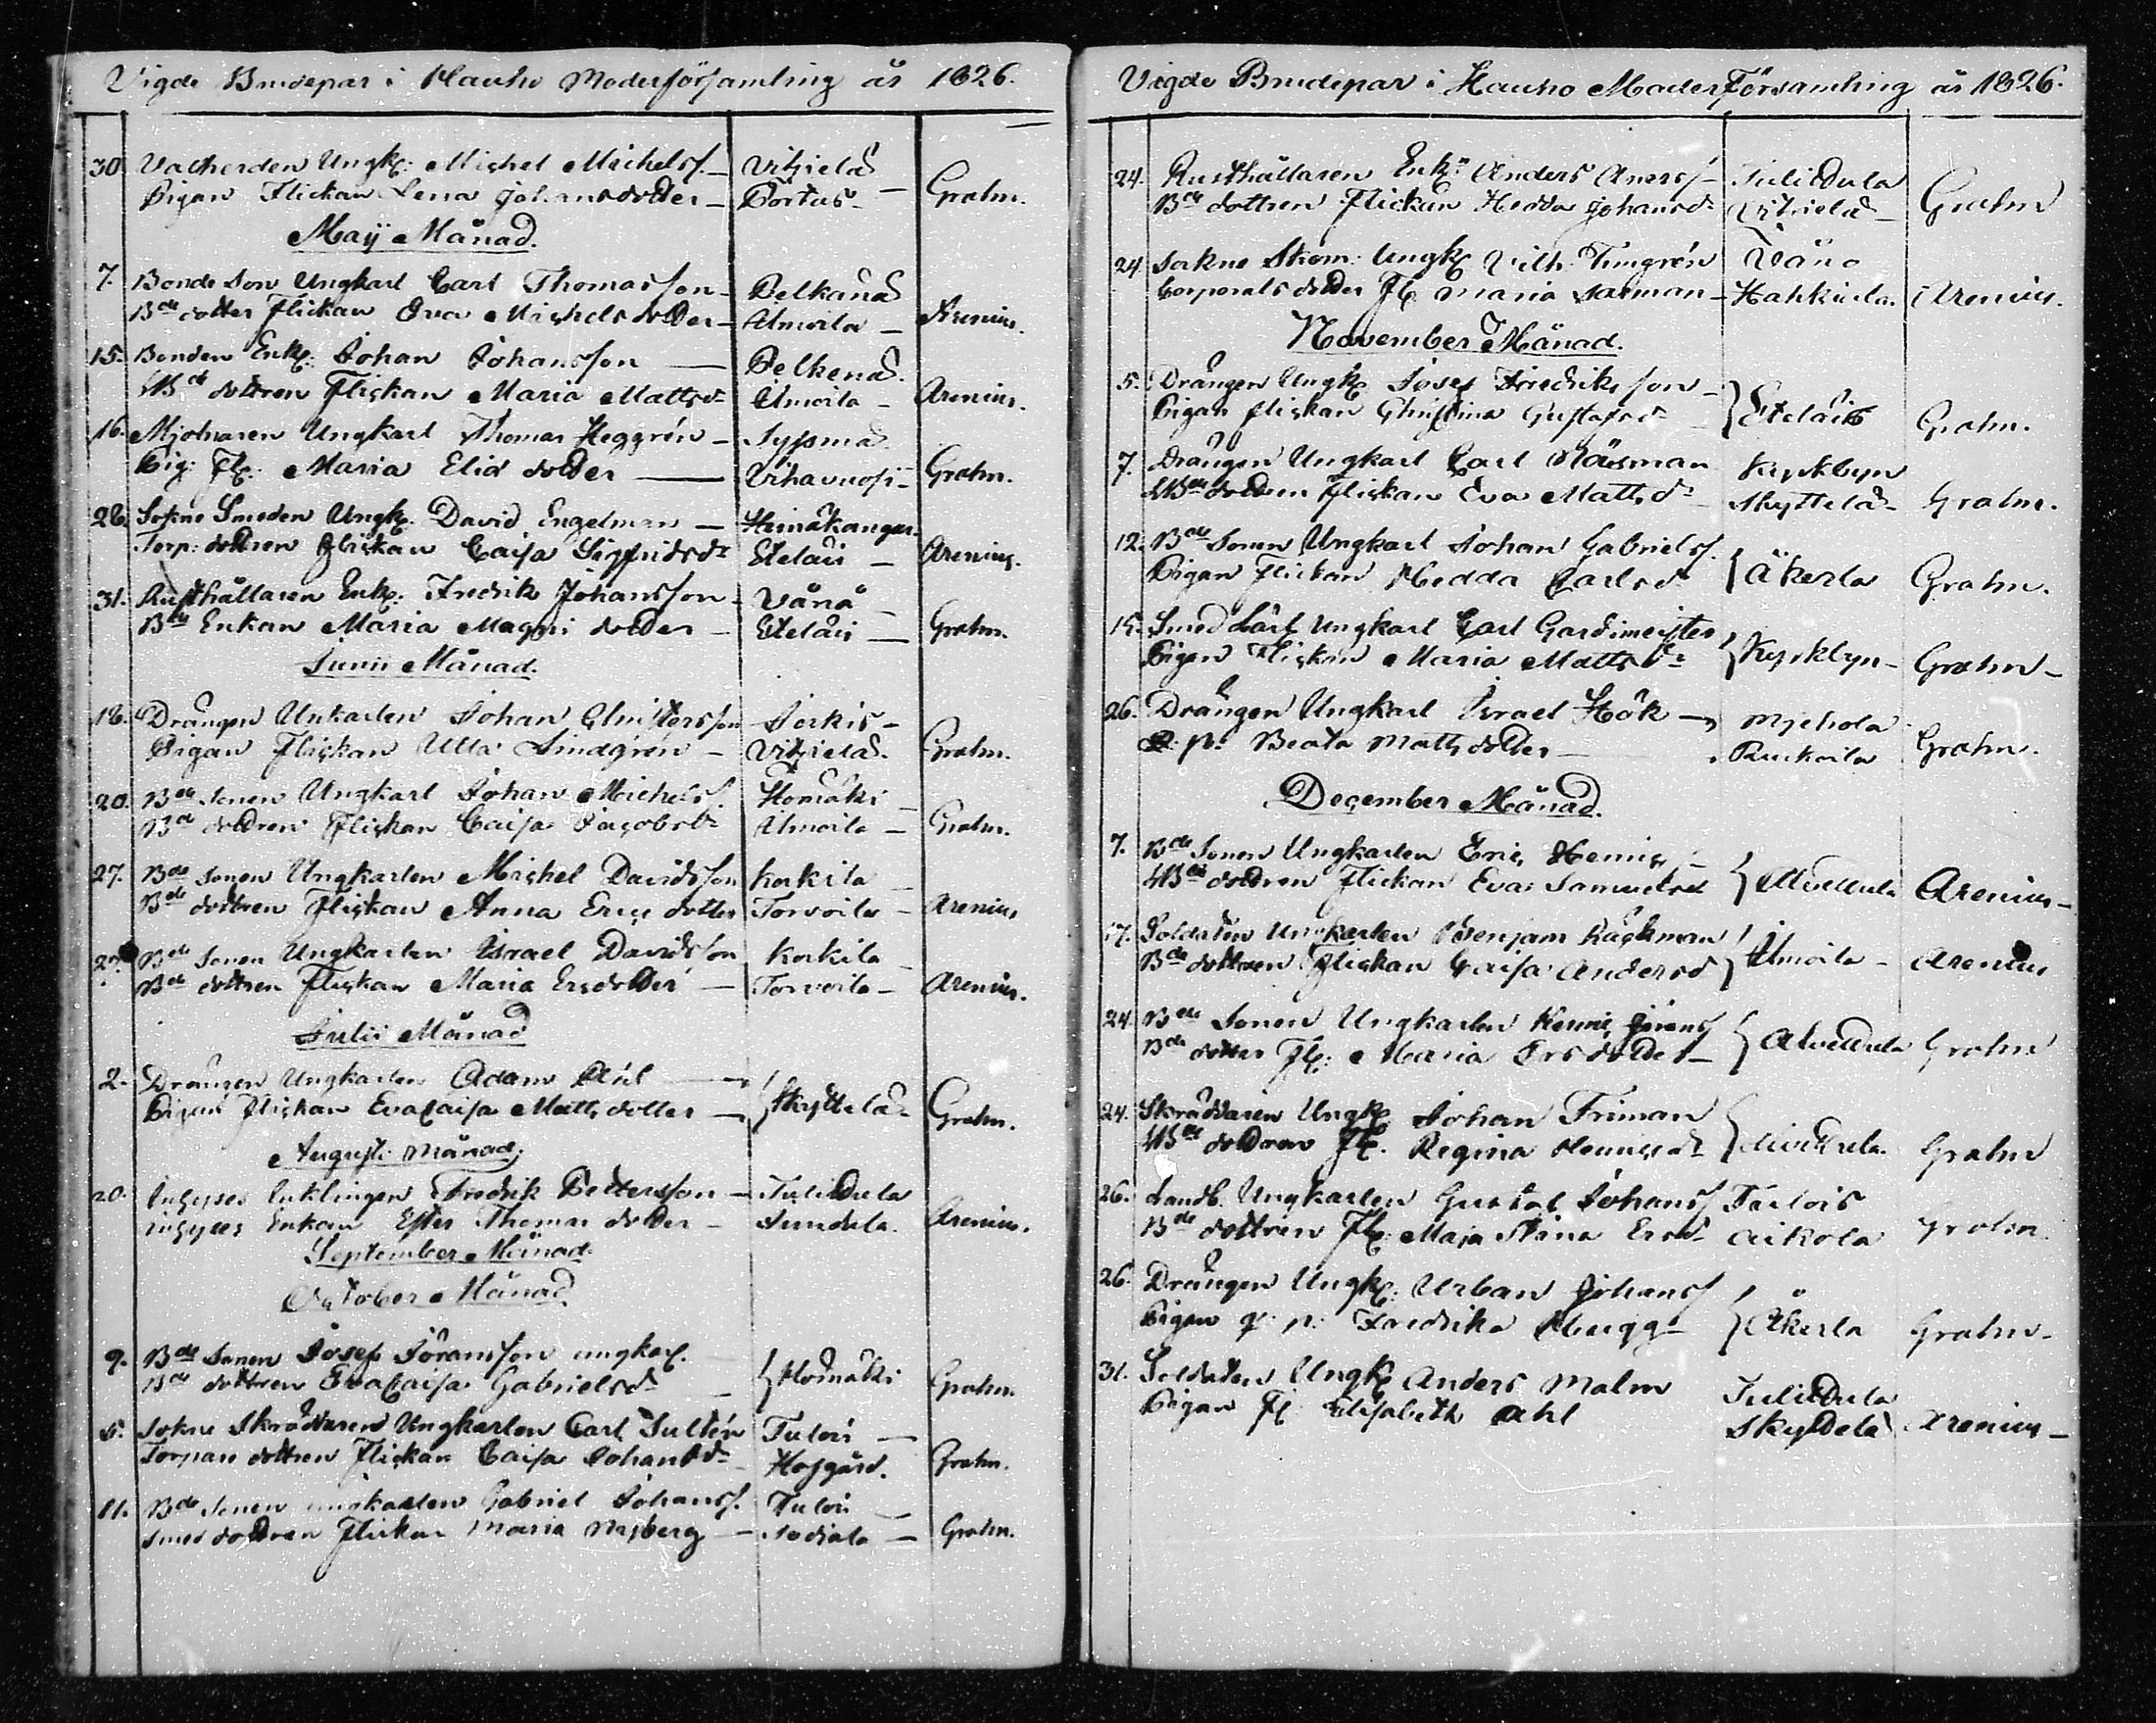 Vigde Brudepar i Hauho Moderförsamling år 1826.
30. Vatherden Ungk: Michel Michelss. — Vitziela — Grahn.
Pigan Flickan Lena Johansdotter — Portas —
Maij Månad.
7. Bonde Son Ungkarl Carl Thomasson — Pelkänä Arenius.
Bde dotter Flickan Eva Michelsdotter — Ilmoila —
15. Bonden Enk: Johan Johansson — Pelkenä Arenius.
Bde dottren Flickan Maria Mattsdr Ilmoila —
16. Mjölnaren Ungkarl Thomas Heggrén — Syssmä Grahn.
Pig: Fl: Maria Elid dotter — Vihavuosi —
28. Sokne Smeden Ungk. David Engelman — Heinäkangas Arenius.
Torp: dottren Flickan Caisa Sigfridsdr Eteläis —
31. Rusthållaren Enk: Fredrik Johansson — Vänä Grahn.
Bde Enkan Maria Magni dotter — Eteläis —
Junii Månad.
18. Drängen Unkarlen Johan Christersson Sorkis — Grahn.
Pigan Flickan Ulla Lindgrén — Vitziela.
20. Bde Sonen Ungkarl Johan Michels. Homäki Grahn.
Bde dottren Flickan Caisa Jacobsdr Ilmoila —
27. Bde Sonen Ungkarlen Michel Davidsson Korkila Arenius
Bde dottren Flickan Anna Erics dotter Torvoila —
27. Bde Sonen Ungkarlen Israel Davidsson Korkila Arenius.
Bde dottren Flickan Maria Ersdotter — Torvoila —
Julii Månad
2. Drängen Ungkarlen Adam Ahl — Skyttelä Grahn.
Pigan Flickan Eva Caisa Matts dotter —
Augusti Månad.
20. Inhyses Enklingen Fredrik Pettersson — Tulidula Arenius.
inhyses Enkan Ester Thomas dotter — Sundula.
September Månad.
October Månad.
9. Bde Sonen Josef Jöransson ungkarl. Homäki Grahn.
Bde dottren Eva Caisa Gabrielsdr
5. Sokne Skräddaren Ungkarlen Carl Sultén Tulois — Grahn.
Torpare dottren Flickan Caisa Johansdr Hofgård.
11. Bde Sonen ungkarlen Gabriel Johanss. Tulois — Grahn.
Smed dottren Flickan Maria Nyberg —
Vigde Brudepar i Hauho Moderförsamling år 1826.
24. Rusthållaren Enk: Anders Anerss — Tulidula Grahn
Bde dottren Flickan Hedda Johansdr Vitziela —
24. Sokne Skom: Ungk Vilh: Timgrén Vänä Arenius.
Corporals dotter Fl: Maria Saxman — Hahkiala.
November Månad.
5. Drängen Ungk Josef Fredriksson — Eteläis Grahn.
Pigan Flickan Christina Gustafsdr
7. Drängen Ungkarl Carl Räsman Kyrkbyn Grahn.
Bde dottren Flickan Eva Mattsdr Skyttelä —
12. Bde Sonen Ungkarl Johan Gabrielss. Äkerla Grahn.
Pigan Flickan Hedda Carlsdr
15. Smed Lärl Ungkarl Carl Gardimeister Kyrkbyn — Grahn —
Pigan Flickan Maria Mattsdr
26. Drängen Ungkarl Israel Hök — Miehola Grahn.
Beata Mattsdotter — Ruokoila
December Månad.
7. Bde Sonen Ungkarlen Eric Henric Alvettula Arenius —
Bde dottren Flickan Eva Samuelsd
17. Soldaten Ungkarlen Benjam Räckman Ilmoila — Arenius
Bde dottren Flickan Caisa Andersd
24. Bde Sonen Ungkarlen Henric Jörans Alvettula Grahn
Bde dotter Fl: Maria Ersdotter —
24. Skräddaren Ungk Johan Friman Alvettula. Grahn
Bde dottren Fl. Regina Henricsdr
26. Landb. Ungkarlen Gustaf Johans Tulois Grahn
Bde dottren Fl: Maja Stina Ersdr Aikola
26. Drängen Ungk: Urban Johans Äkerla Grahn —
Pigan q: p: Fredrika
31. Soldaten Ungk Anders Malm Tulidula Arenius —
Pigan Fl Elisabeth Ahl Skyttelä